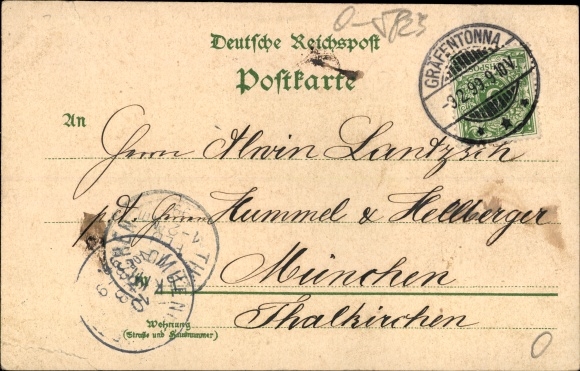 Deutsche Reichspost
Postkarte
GRÄFENTONNA
-3.2.99.9-10V.
An
Herrn Alwin Lantzsch
p. Herren Hummel & Hellberger
München
Thalkirchen
Wohnung
(Straße und Hausnummer)